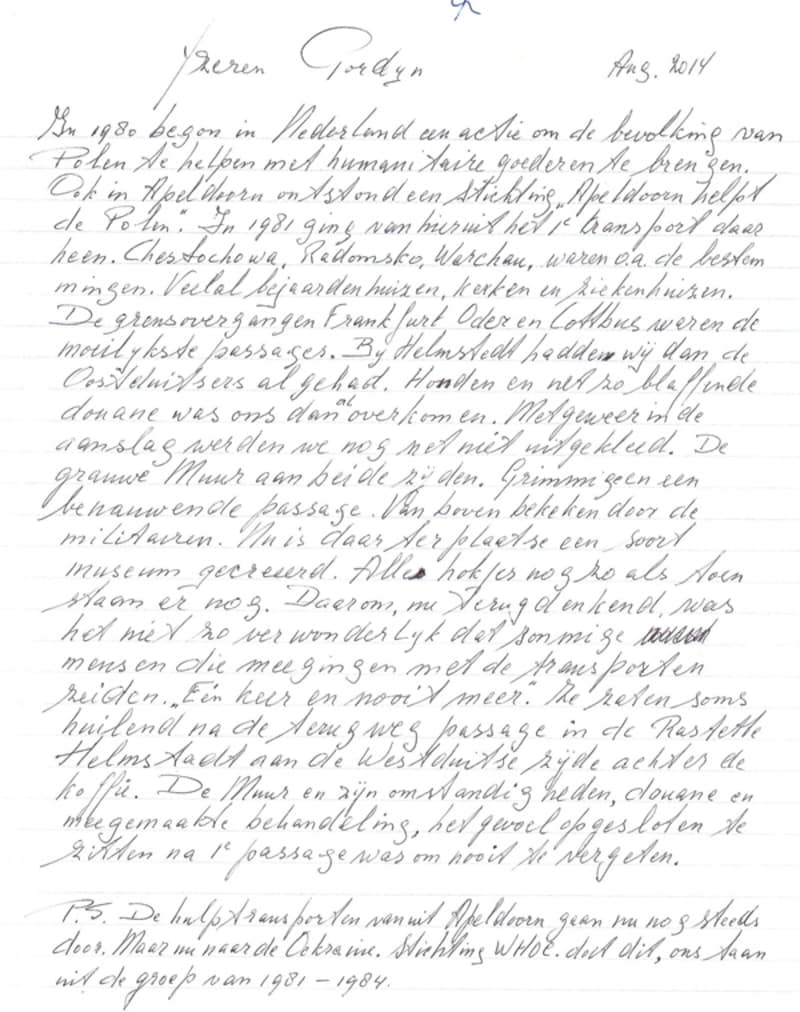 Yzeren Gordyn Aug. 2014
In 1980 begon in Nederland een actie om de bevolking van
Polen te helpen met humanitaire goederen te brengen.
Ook in Apeldoorn ontstond een Stichting „Apeldoorn helpt
de Polen". In 1981 ging van hieruit het 1e transport daar
heen. Chestochowa, Radomsko, Warchau, waren o.a. de bestem
mingen. Veelal bejaardenhuizen, kerken en ziekenhuizen.
De grensovergangen Frankfurt Oder en Cottbus waren de
moeilykste passages. By Helmstedt hadden wy dan de
Oostduitsers al gehad. Honden en net zo blaffende
douane was ons dan al overkomen. Met geweer in de
aanslag werden we nog net niet uitgekleed. De
grauwe Muur aan beide zyden. Grimmig en een
benauwende passage. Van boven bekeken door de
militairen. Nu is daar ter plaatse een soort
museum gecreeerd. Alle hokjes nog zo als toen
staan er nog. Daarom, nu terugdenkend, was
het niet zo verwonderlyk dat sommige
mensen die meegingen met de transporten
zeiden. „Eén keer en nooit meer". Ze zaten soms
huilend na de terugweg passage in de Rastette
Helmstadt aan de Westduitse zyde achter de
koffie. De Muur en zijn omstandigheden, douane en
meegemaakte behandeling, het gevoel opgesloten te
zitten na 1e passage was om nooit te vergeten.
P.S. De hulptransporten vanuit Apeldoorn gaan nu nog steeds
door. Maar nu naar de Oekraine. Stichting WHOE. doet dit, ontstaan
uit de groep van 1981 – 1984.